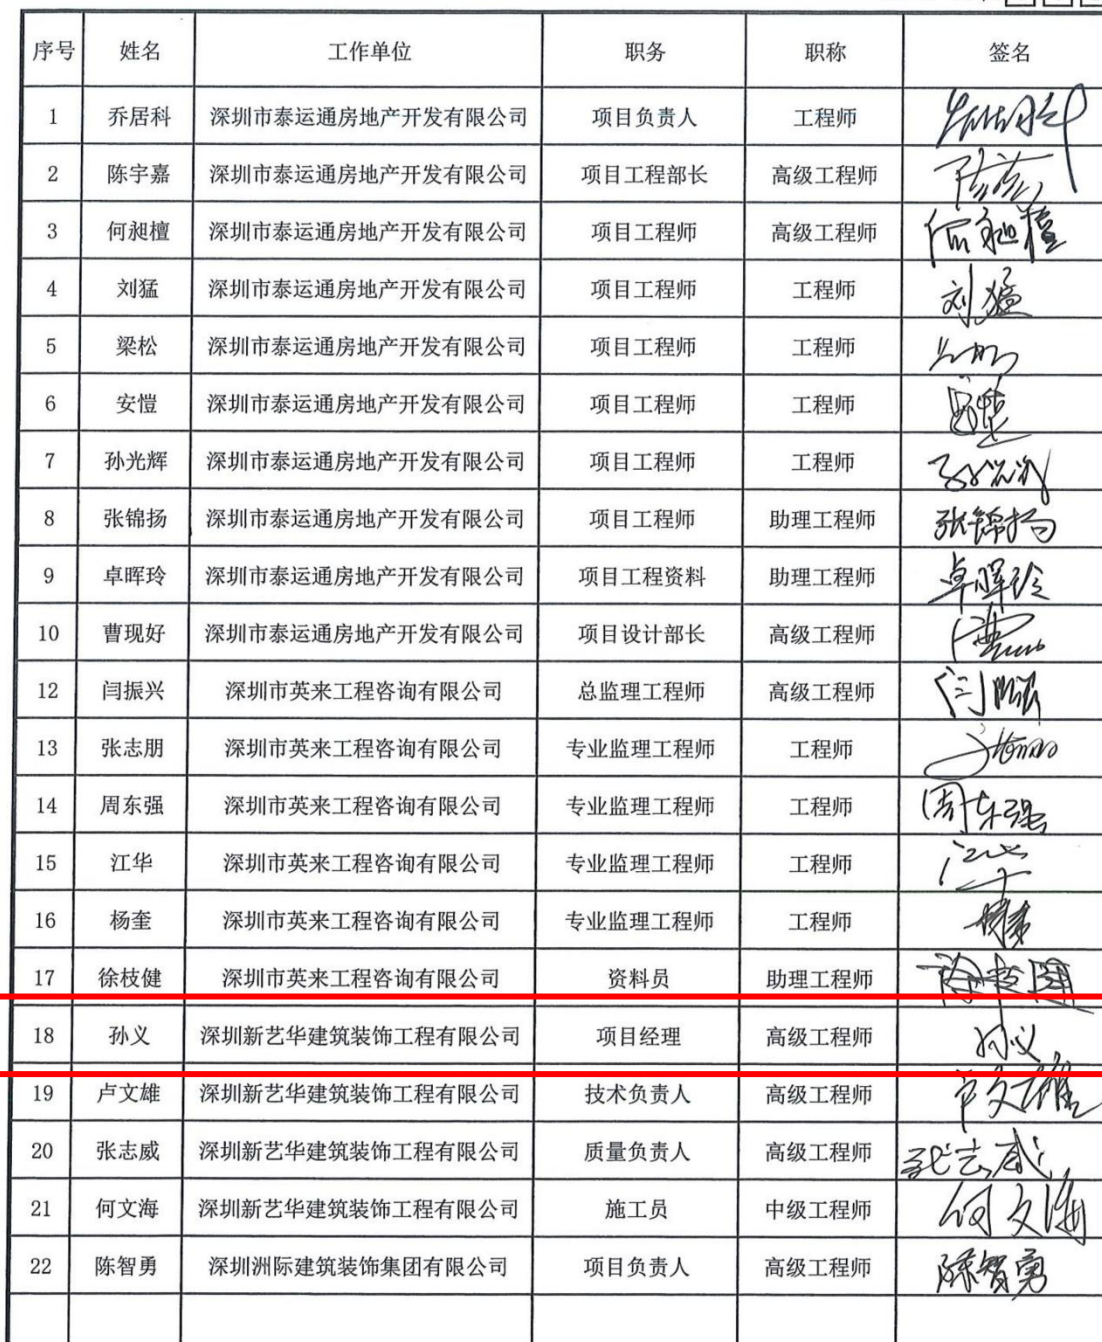 序号 姓名 工作单位 职务 职称 签名
1 乔居科 深圳市泰运通房地产开发有限公司 项目负责人 工程师
2 陈宇嘉 深圳市泰运通房地产开发有限公司 项目工程部长 高级工程师
3 何昶檀 深圳市泰运通房地产开发有限公司 项目工程师 高级工程师 何昶檀
4 刘猛 深圳市泰运通房地产开发有限公司 项目工程师 工程师 刘猛
5 梁松 深圳市泰运通房地产开发有限公司 项目工程师 工程师
6 安愷 深圳市泰运通房地产开发有限公司 项目工程师 工程师
7 孙光辉 深圳市泰运通房地产开发有限公司 项目工程师 工程师
8 张锦扬 深圳市泰运通房地产开发有限公司 项目工程师 助理工程师 张锦扬
9 卓晖玲 深圳市泰运通房地产开发有限公司 项目工程资料 助理工程师 卓晖玲
10 曹现好 深圳市泰运通房地产开发有限公司 项目设计部长 高级工程师
12 闫振兴 深圳市英来工程咨询有限公司 总监理工程师 高级工程师
13 张志朋 深圳市英来工程咨询有限公司 专业监理工程师 工程师
14 周东强 深圳市英来工程咨询有限公司 专业监理工程师 工程师 周东强
15 江华 深圳市英来工程咨询有限公司 专业监理工程师 工程师 江华
16 杨奎 深圳市英来工程咨询有限公司 专业监理工程师 工程师
17 徐枝健 深圳市英来工程咨询有限公司 资料员 助理工程师
18 孙义 深圳新艺华建筑装饰工程有限公司 项目经理 高级工程师 孙义
19 卢文雄 深圳新艺华建筑装饰工程有限公司 技术负责人 高级工程师 卢文雄
20 张志威 深圳新艺华建筑装饰工程有限公司 质量负责人 高级工程师 张志威
21 何文海 深圳新艺华建筑装饰工程有限公司 施工员 中级工程师 何文海
22 陈智勇 深圳洲际建筑装饰集团有限公司 项目负责人 高级工程师 陈智勇